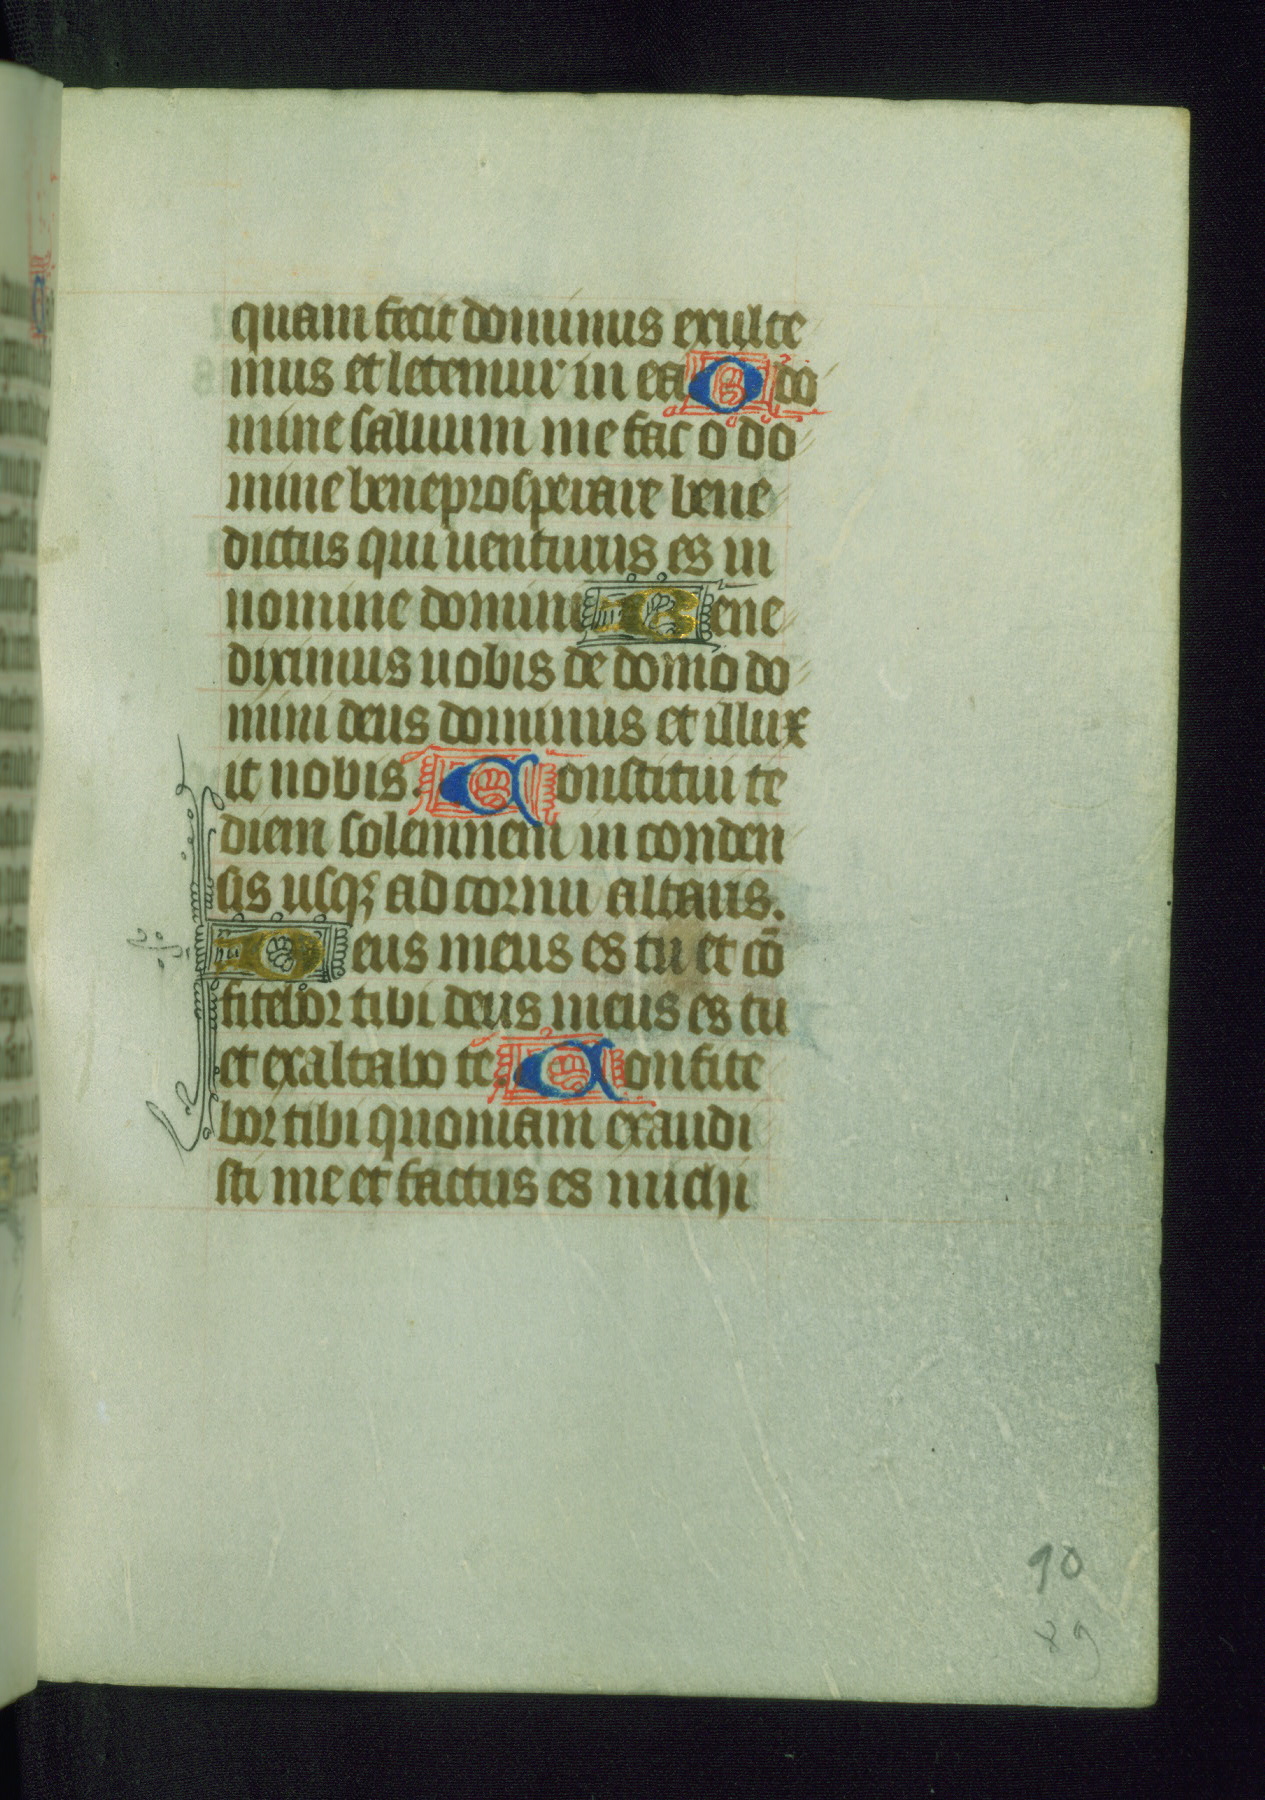 quam fecit dominus exulte
mus et letemur in ea O do
mine saluum me fac o do
mine bene prosperare bene
dictus qui uenturus es in
nomine domini Bene
diximus uobis de domo do
mini deus dominus et illux
it nobis. Constitui te
diem solemnem in conden
sis usqꝫ ad cornu altaris.
Deus meus es tu et cō
fitebor tibi deus meus es tu
et exaltabo te. Confite
bor tibi quoniam exaudi
sti me et factus es michi
90
89